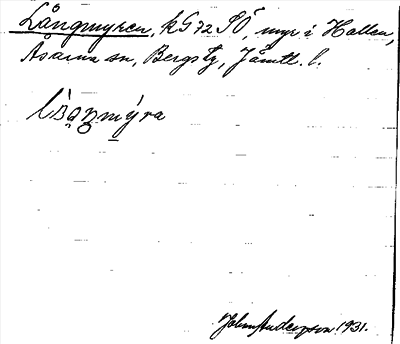 Långmyren, kG72SO, myr i Hallen,
Åsarna sn, Bergs tg, Jämtl. l.
John Anderson 1931.